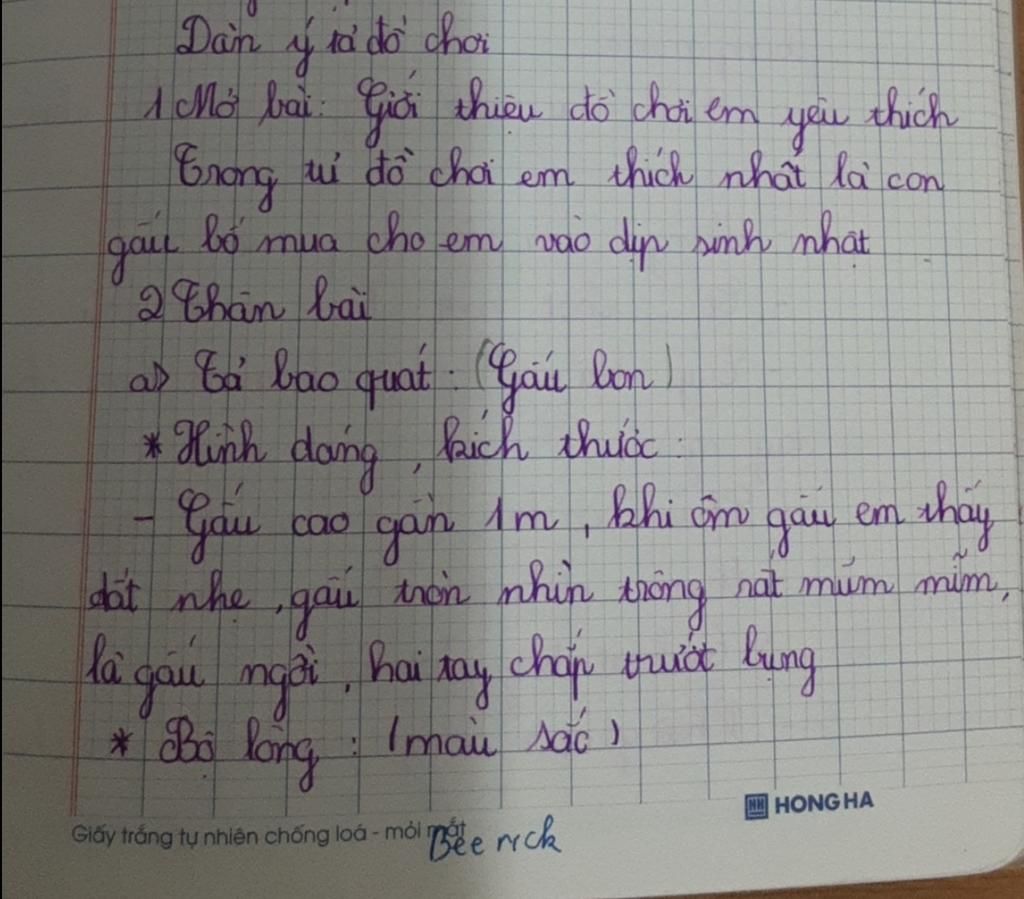 Dàn ý tả đồ chơi
1 Mở bài: Giới thiệu đồ chơi em yêu thích
Trong tủ đồ chơi em thích nhất là con
gấu bố mua cho em vào dịp sinh nhật
2 Thân bài
a) Tả bao quát: (Gấu bon)
* Hình dáng, kích thước:
- Gấu cao gần 1m, khi ôm gấu em thấy
dất nhẹ, gấu tròn nhìn trông rất mũm mĩm,
là gấu ngồi, hai tay chắp trướt bụng
* Bộ lông: (màu sắc)
HONG HA
Giấy trắng tự nhiên chống loá - mỏi mắt